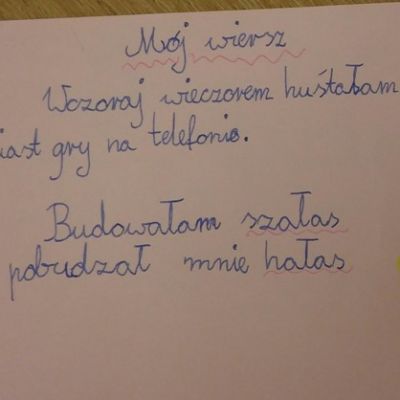 Mój wiersz
Wczoraj wieczorem huśtałam
iast gry na telefonie.
Budowałam szałas
pobudzał mnie hałas